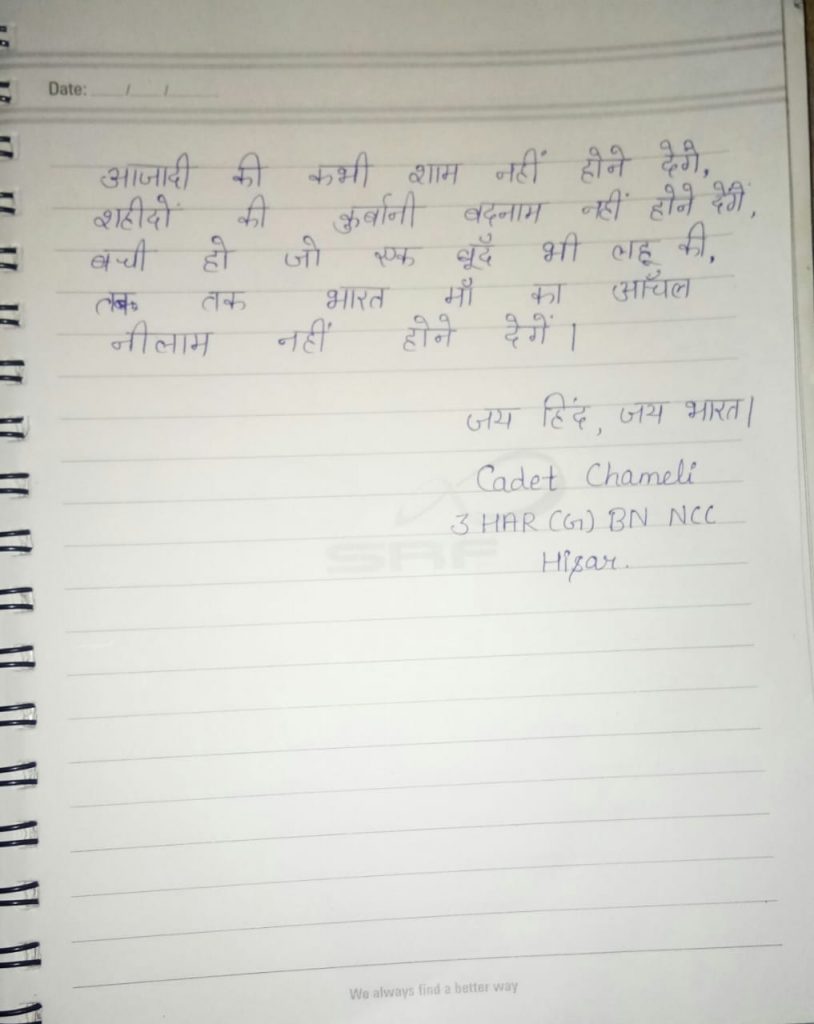 Date: / /
आजादी की कभी शाम नहीं होने देगे,
शहीदों की कुर्बानी बदनाम नहीं होने देगें,
बची हो जो एक बूँद भी लहू की,
तब तक भारत माँ का आँचल
नीलाम नहीं होने देगें।
जय हिंद, जय भारत।
Cadet Chameli
3 HAR (G) BN NCC
Hisar.
SRF
We always find a better way